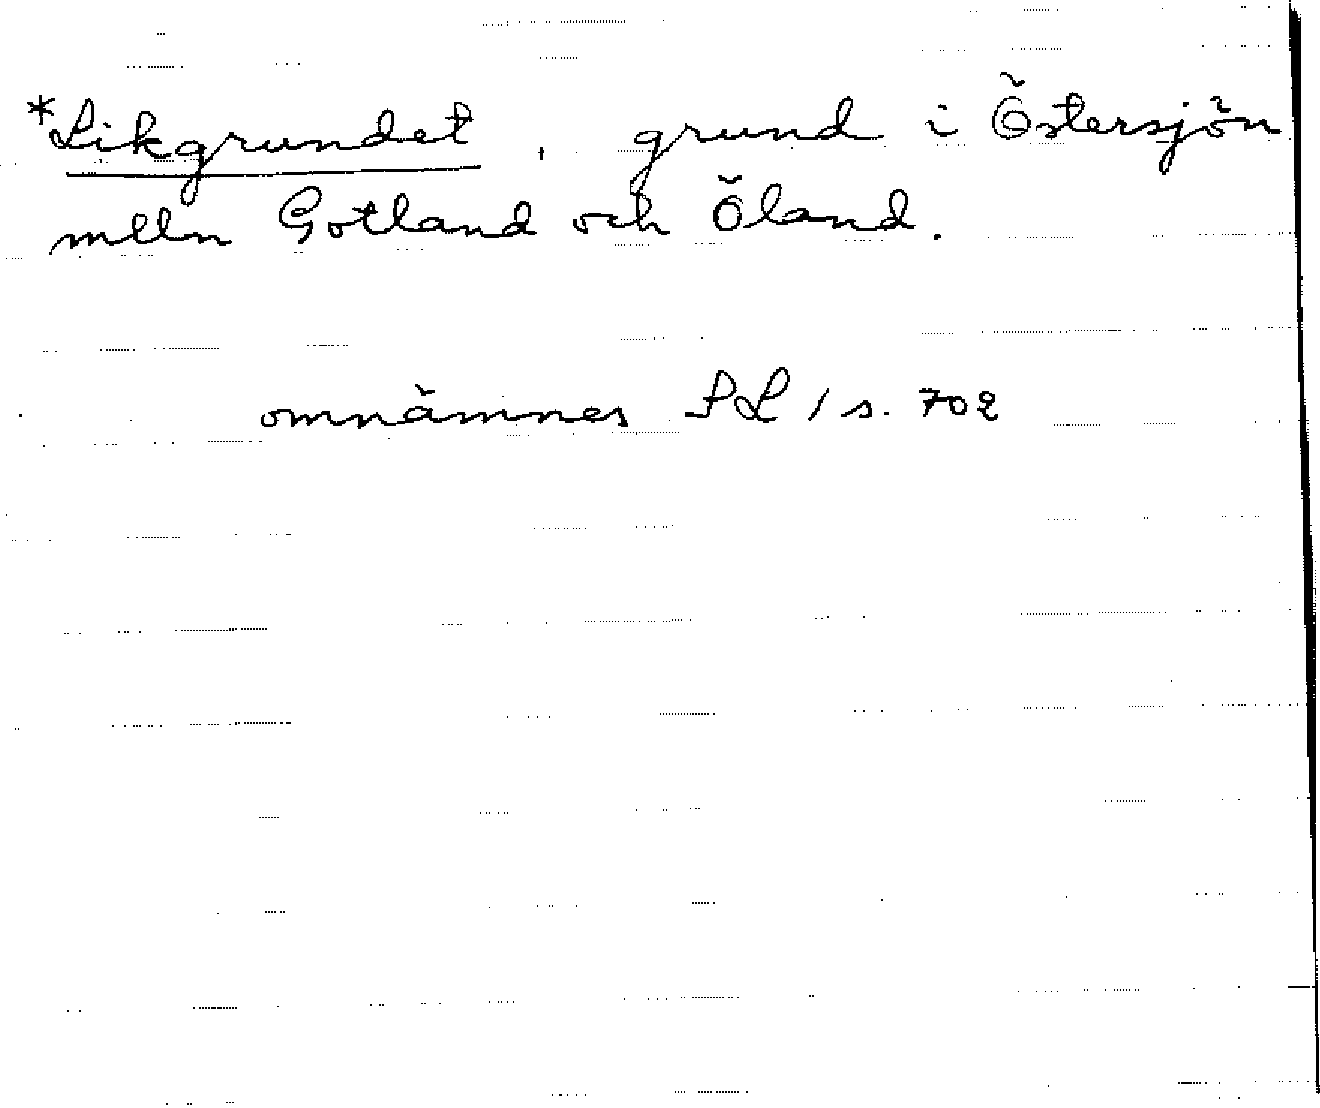 *Likgrundet, grund i Östersjön
mlln Gotland och Öland.
omnämnes PL 1 s. 702